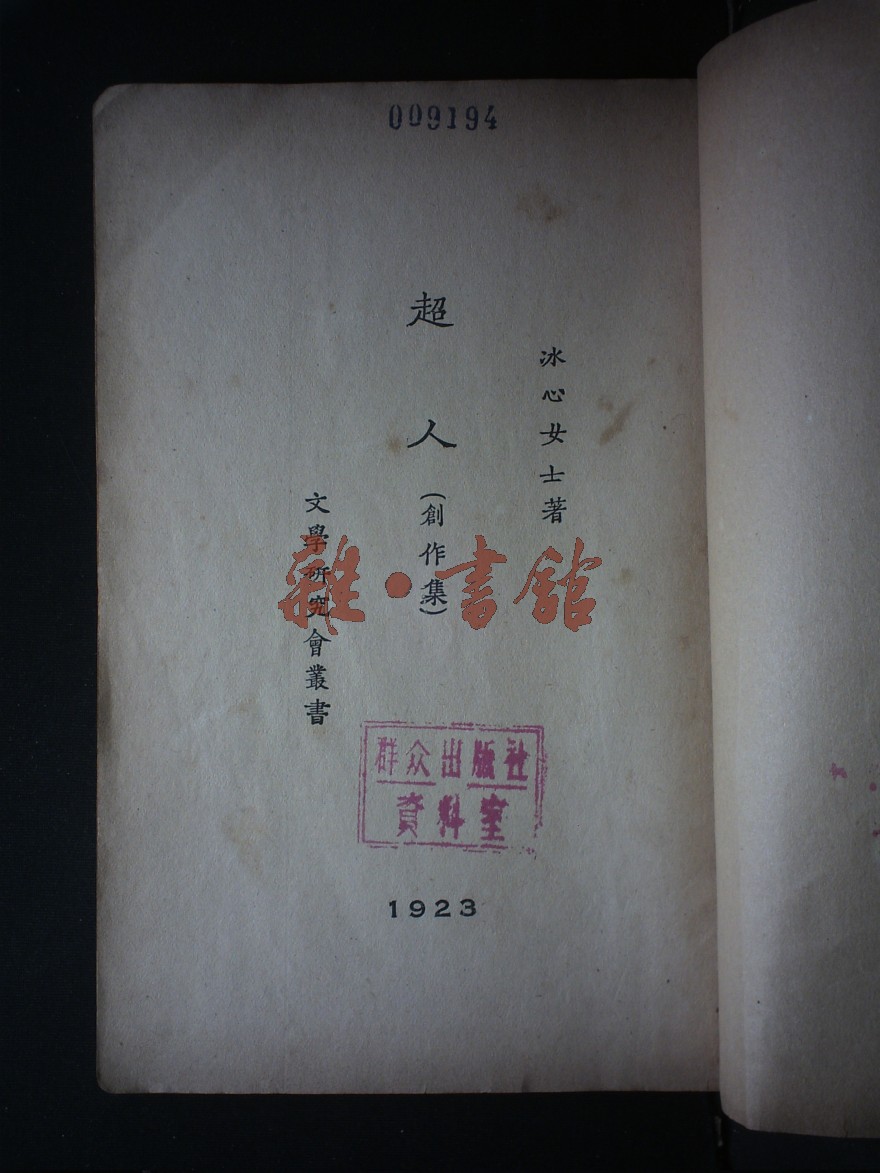 009194
冰心女士著
超人
(創作集)
文學研究會叢書
雜·書館
群众出版社
資料室
1923